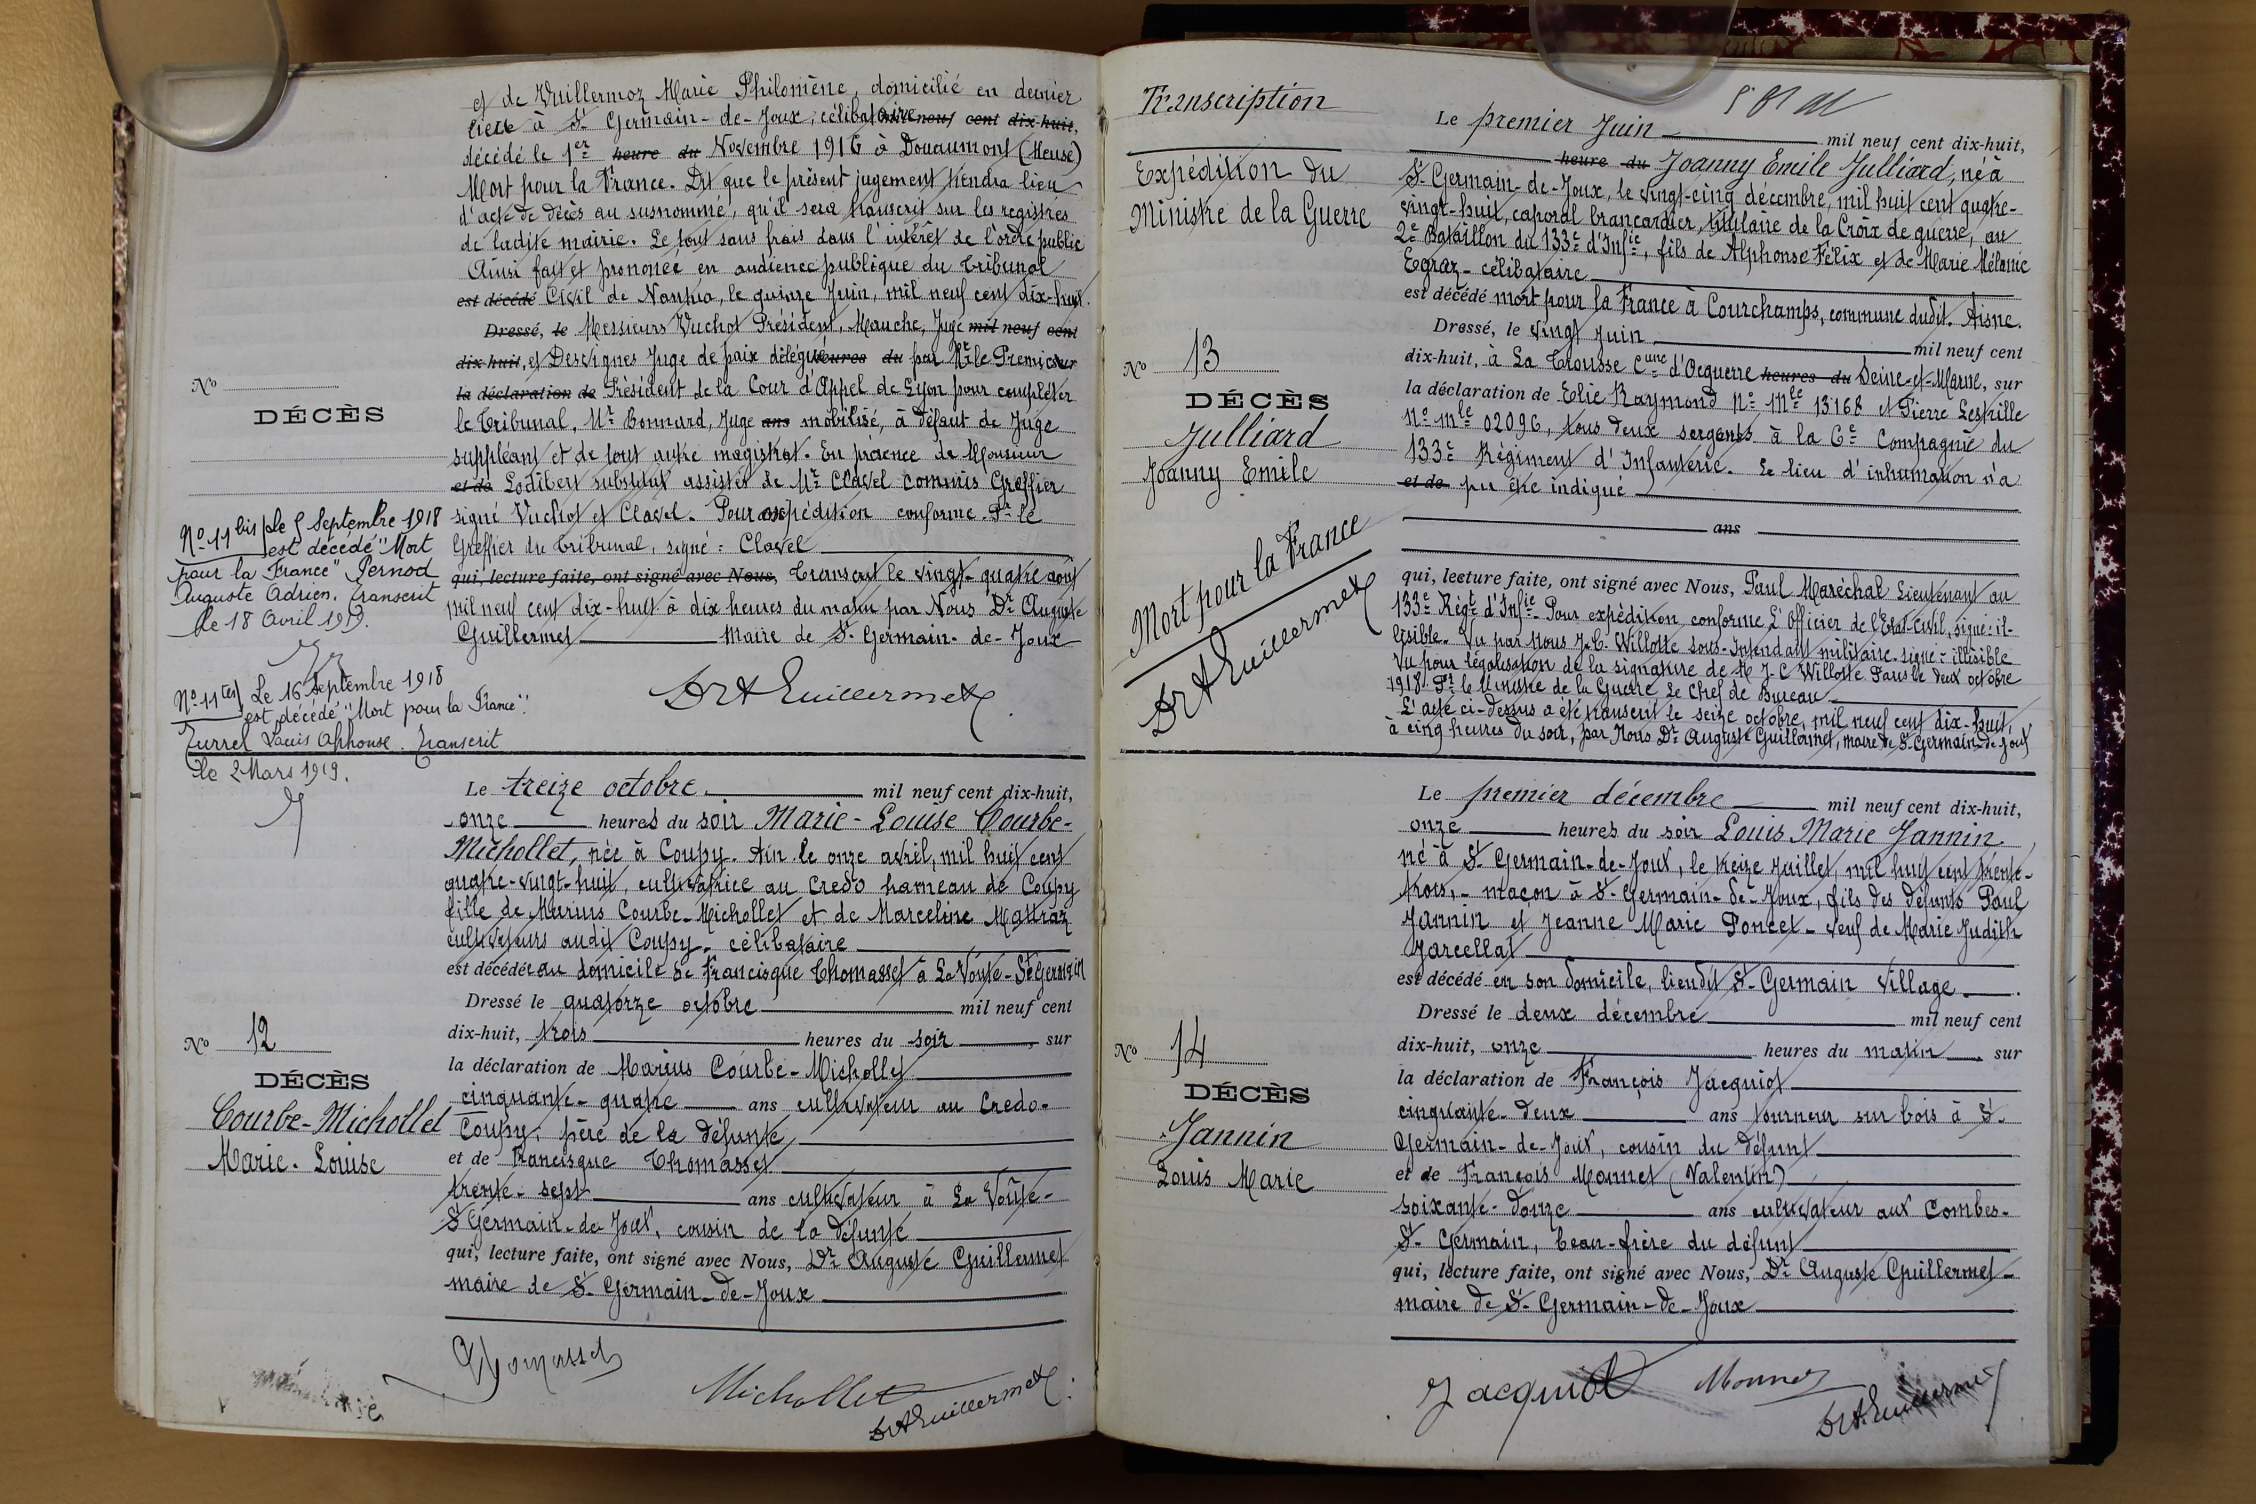 et de Vuillermoz Marie Philomène, domicilié en dernier
lieu à St Germain-de-Joux, célibataire neuf cent dix-huit,
décédé le 1er heure du Novembre 1916 à Douaumont (Meuse)
Mort pour la France. Dit que le présent jugement tiendra lieu
d'acte de décès au susnommé, qu'il sera transcrit sur les registres
de ladite mairie. Le tout sans frais dans l'intérêt de l'ordre public
Ainsi fait et prononcé en audience publique du Tribunal
est décédé Civil de Nantua, le quinze Juin, mil neuf cent dix-huit.
Dressé, le Messieurs Vuchot Président, Mauche, Juge mil neuf cent
dix-huit, et Desvignes Juge de paix délégué heures du par Mr le Premier sur
la déclaration de Président de la Cour d'Appel de Lyon pour compléter
le Tribunal, Mr Bonnard, Juge ans mobilisé, à défaut de Juge
suppléant et de tout autre magistrat. En présence de Monsieur
et de Lodibert substitut assistés de Mr Clavel commis Greffier
signé Vuchot et Clavel. Pour expédition conforme. Pr le
Greffier du Tribunal, signé : Clavel
qui, lecture faite, ont signé avec Nous, Transcrit le vingt-quatre août
mil neuf cent dix-huit à dix heures du matin par Nous Dr Auguste
Guillermet Maire de St Germain-de-Joux
DrAGuillermet
No
DÉCÈS
No 11 bis Le 5 Septembre 1918
est décédé "Mort
pour la France" Pernod
Auguste Adrien. transcrit
le 18 Avril 1919.
No 11 ter Le 16 Septembre 1918
est décédé "Mort pour la France".
Turrel Louis Alphonse. Transcrit
le 2 Mars 1919.
Le treize octobre mil neuf cent dix-huit,
onze heures du soir Marie-Louise Courbe-
Michollet, née à Coupy. Ain. le onze avril, mil huit cent
quatre-vingt-huit, cultivatrice au Credo hameau de Coupy
fille de Marius Courbe-Michollet et de Marceline Mattraz
cultivateurs audit Coupy. célibataire
est décédée au domicile de Francisque Thomasset à La Voûte-St Germain
Dressé le quatorze octobre mil neuf cent
dix-huit, trois heures du soir, sur
la déclaration de Marius Courbe-Michollet
cinquante-quatre ans cultivateur au Credo-
Coupy, père de la défunte,
et de Francisque Thomasset
trente-sept ans cultivateur à La Voûte-
St Germain-de-Joux, cousin de la défunte
qui, lecture faite, ont signé avec Nous, Dr Auguste Guillermet
maire de St Germain-de-Joux
No 12
DÉCÈS
Courbe-Michollet
Marie-Louise
Thomasset
Michollet
DrAGuillermet
Transcription
Expédition du
Ministre de la Guerre
Le premier Juin mil neuf cent dix-huit,
heure du Joanny Emile Julliard, né à
St Germain-de-Joux, le vingt-cinq décembre, mil huit cent quatre-
vingt-huit, caporal brancardier, titulaire de la Croix de guerre, au
2e Bataillon du 133e d'Infie, fils de Alphonse Félix et de Marie Mélanie
Egraz - célibataire
est décédé mort pour la France à Courchamps, commune dudit. Aisne.
Dressé, le vingt Juin mil neuf cent
dix-huit, à La Trousse Cune d'Ocquerre heures du Seine-et-Marne, sur
la déclaration de Elie Raymond No mle 13168 et Pierre Lestrille
No mle 02096, tous deux sergents à la 6e Compagnie du
133e Régiment d'Infanterie. Le lieu d'inhumation n'a
et de pu être indiqué
ans
qui, lecture faite, ont signé avec Nous, Paul Maréchal Lieutenant au
133e Régt d'Infie Pour expédition conforme L'Officier de l'Etat-Civil, signé: il-
lisible. Vu par Nous J.C. Willotte sous-Intendant militaire. signé - illisible
Vu pour légalisation de la signature de M J.C Willotte Paris le deux octobre
1918. Pr le Ministre de la Guerre Le Chef de Bureau
L'acte ci-dessus a été transcrit le seize octobre, mil neuf cent dix-huit,
à cinq heures du soir, par Nous Dr Auguste Guillermet, maire de St Germain-de-Joux
No 13
DÉCÈS
Julliard
Joanny Emile
Mort pour la France
DrAGuillermet
Le premier décembre mil neuf cent dix-huit,
onze heures du soir Louis Marie Jannin
né à St Germain-de-Joux, le treize Juillet, mil huit cent trente-
trois, - maçon à St Germain-de-Joux, fils des défunts Paul
Jannin et Jeanne Marie Poncet - veuf de Marie Judith
Jarcellat
est décédé en son domicile, lieudit St Germain Village
Dressé le deux décembre mil neuf cent
dix-huit, onze heures du matin, sur
la déclaration de François Jacquiot
cinquante-deux ans tourneur sur bois à St
Germain-de-Joux, cousin du défunt
et de François Monnet (Valentin)
soixante-donze ans cultivateur aux Combes-
St Germain, beau-frère du défunt
qui, lecture faite, ont signé avec Nous, Dr Auguste Guillermet-
maire de St Germain-de-Joux
No 14
DÉCÈS
Jannin
Louis Marie
Jacquiot
Monnet
DrAGuillermet